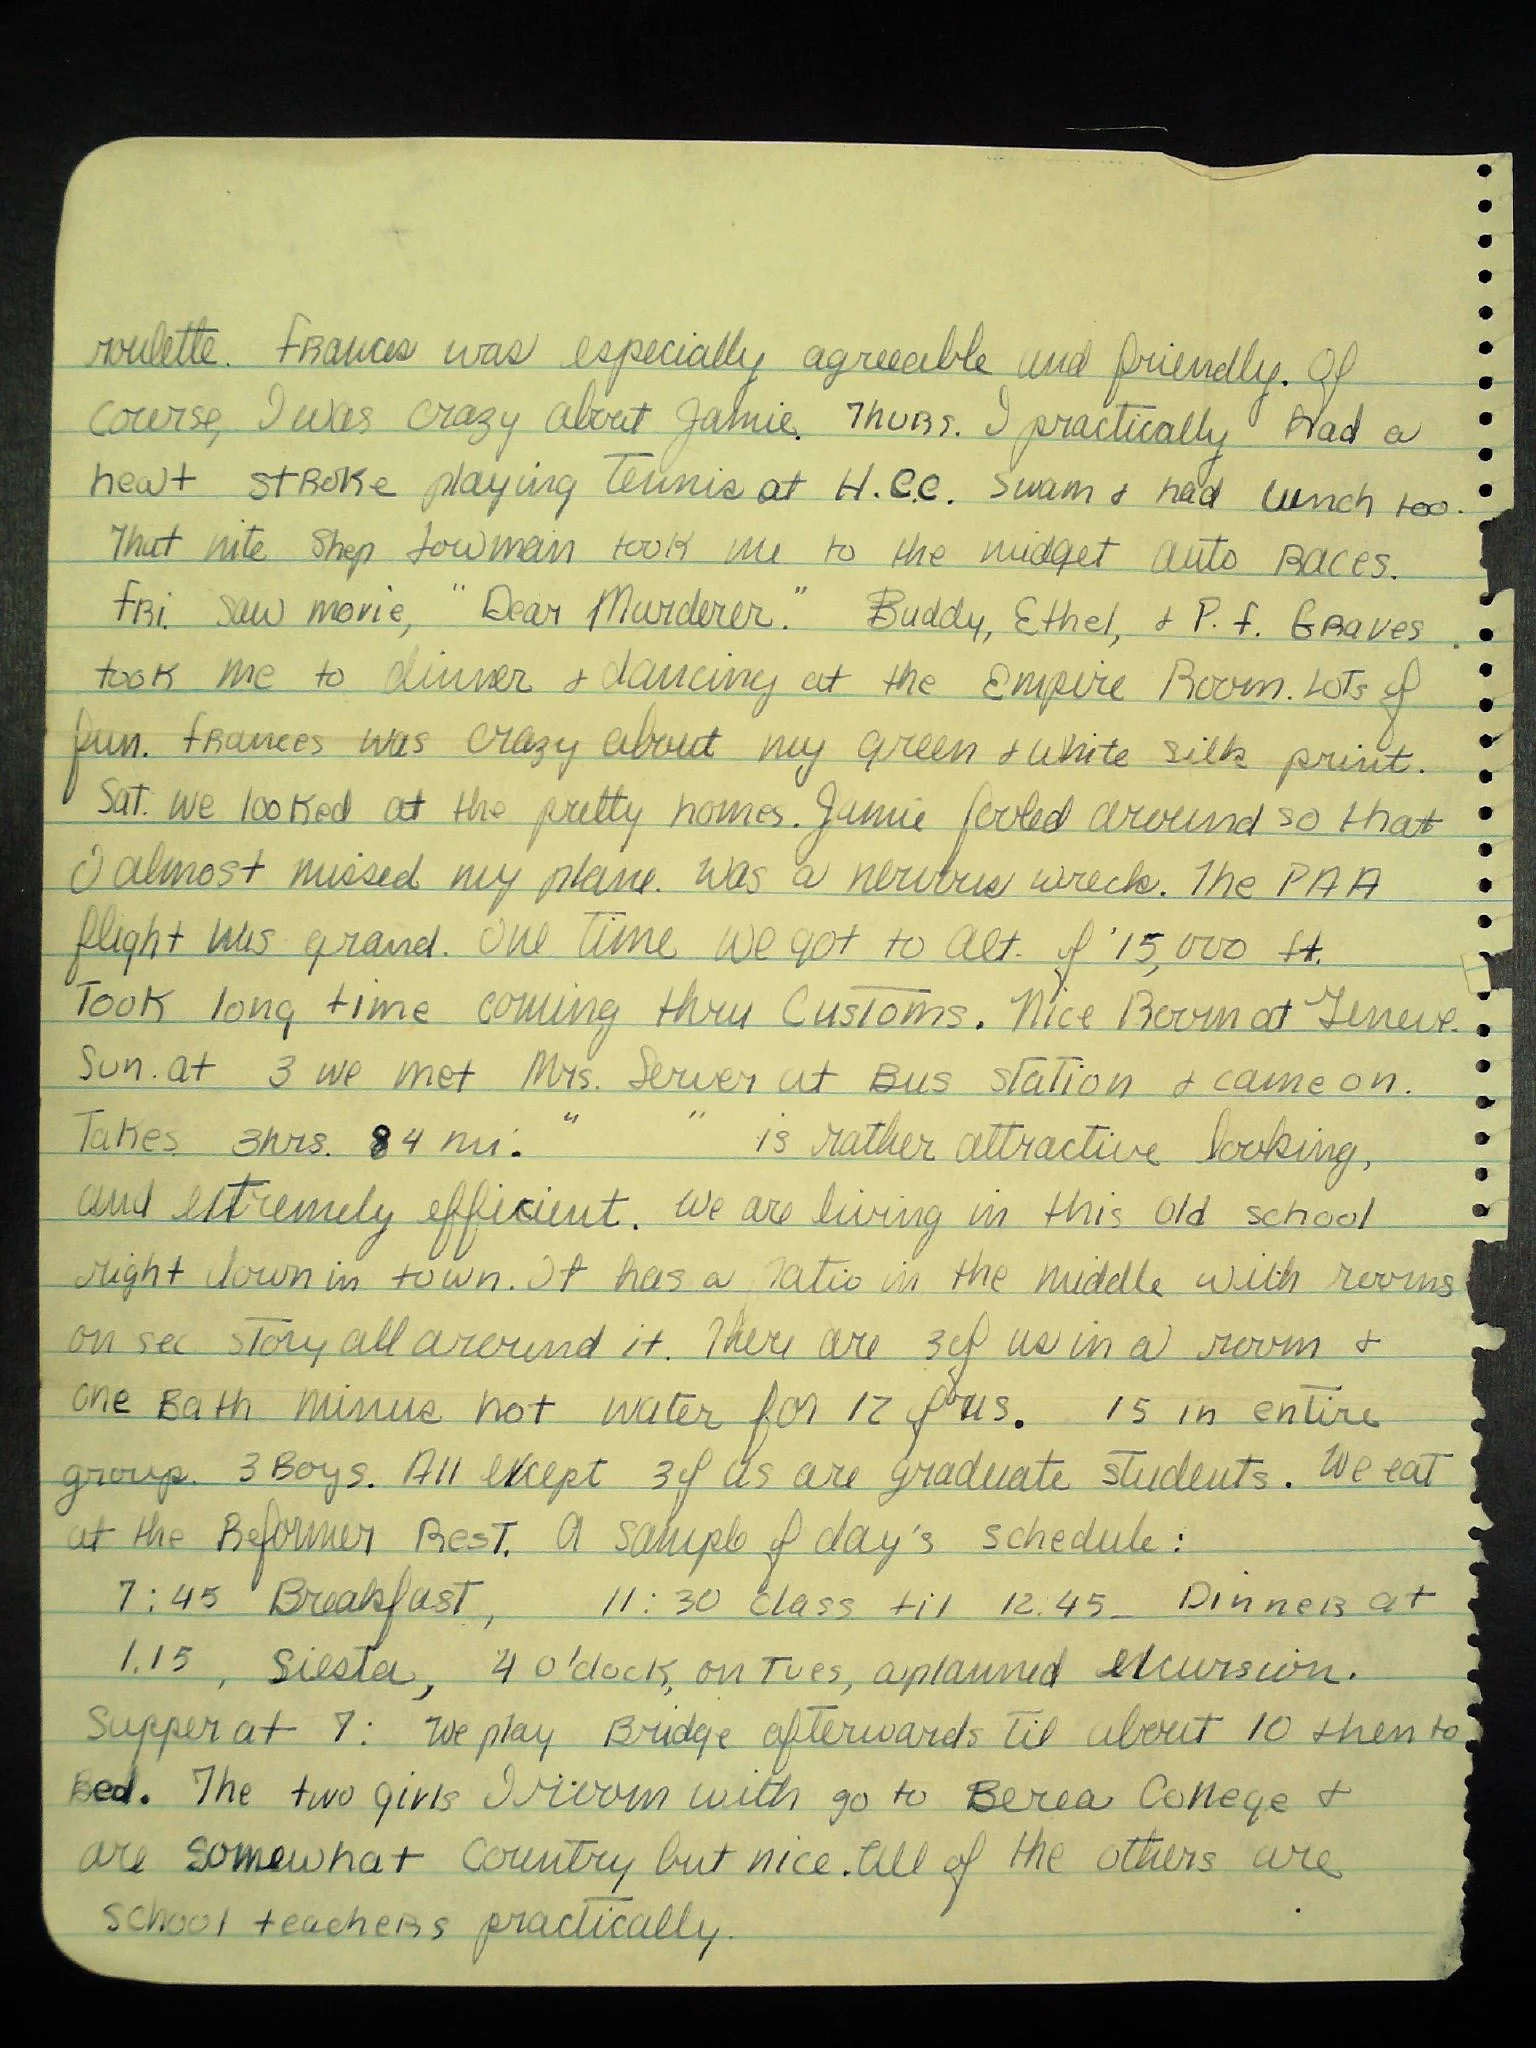 roulette. Frances was especially agreeable and friendly. Of
course, I was crazy about Jamie. Thurs. I practically had a
heat stroke playing tennis at H.C.C. Swam & had lunch too.
That nite Shep Lowman took me to the midget auto races.
Fri. saw movie, "Dear Murderer." Buddy, Ethel, & P. F. Graves
took me to dinner & dancing at the Empire Room. Lots of
fun. Frances was crazy about my green & white silk print.
Sat. we looked at the pretty homes. Jamie fooled around so that
I almost missed my plane. Was a nervous wreck. The PAA
flight was grand. One time we got to alt. of '15,000 ft.
Took long time coming thru Customs. Nice Room at Geneve.
Sun. at 3 we met Mrs. Server at Bus station & came on.
Takes 3hrs. 84 mi. " " is rather attractive looking,
and extremely efficient. We are living in this old school
right down in town. It has a patio in the middle with rooms
on sec story all around it. There are 3 of us in a room &
one Bath minus hot water for 12 of us. 15 in entire
group. 3 Boys. All except 3 of us are graduate students. We eat
at the Reformer Rest. A sample of day's schedule:
7:45 Breakfast, 11:30 class til 12:45_ Dinner at
1.15, Siesta, 4 o'clock, on Tues, a planned excursion.
Supper at 7: We play Bridge afterwards til about 10 then to
Bed. The two girls I room with go to Berea College &
are somewhat country but nice. All of the others are
school teachers practically.